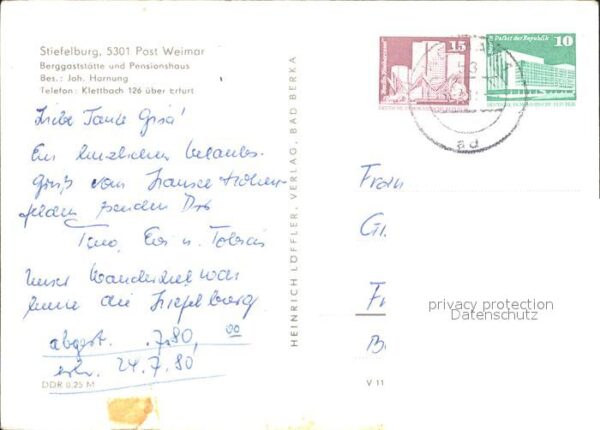 Stiefelburg, 5301 Post Weimar
Berggaststätte und Pensionshaus
Bes.: Joh. Hornung
Telefon: Klettbach 126 über Erfurt
Liebe Tante Gisa!
Ein herzlichen Urlaubs-
gruß vom Kranichfelden senden Dir
Timo, Evi u. Tobias
Unser Wanderziel war
heute die Stiefelburg.
abgest. .7.80, 00
erh. 24.7.80
DDR 0,25 M
HEINRICH LÖFFLER, VERLAG, BAD BERKA
V 11
15
Palast der Republik
10
DEUTSCHE DEMOKRATISCHE REPUBLIK
DEUTSCHE DEMOKRATISCHE REPUBLIK
ad
Fram
G
F
privacy protection
Datenschutz
B